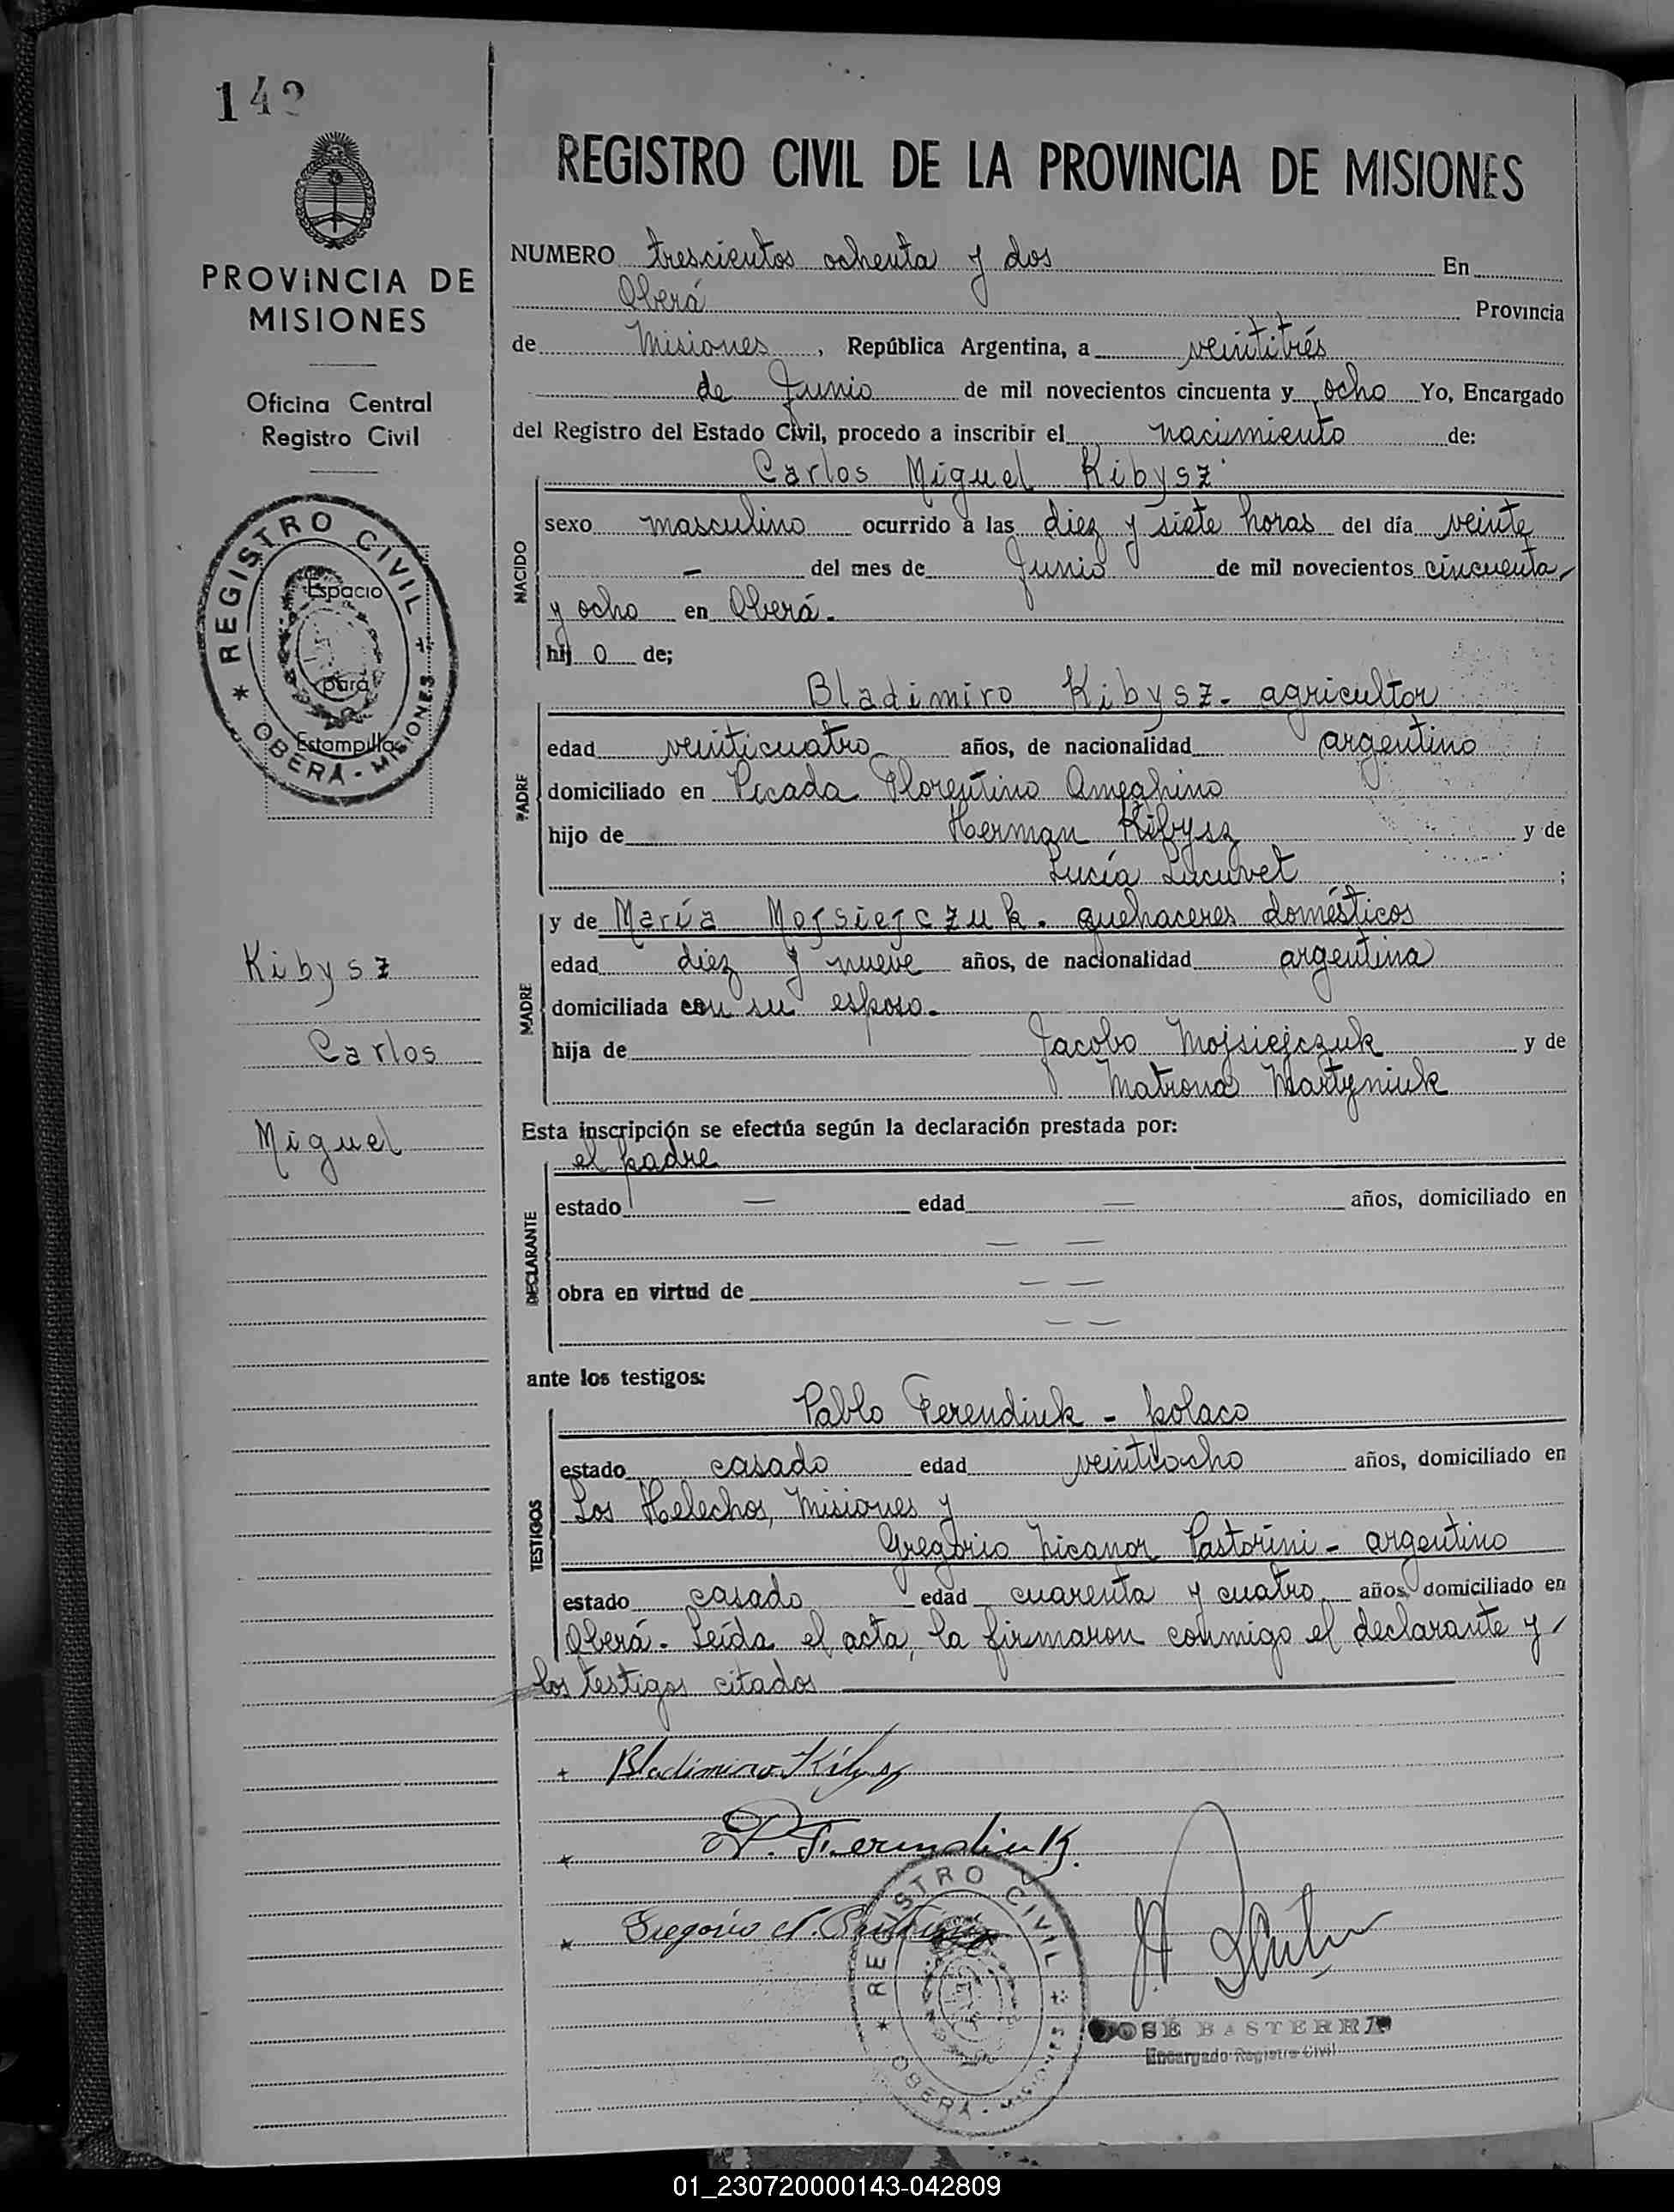 142
REGISTRO CIVIL DE LA PROVINCIA DE MISIONES
PROVINCIA DE
MISIONES
Oficina Central
Registro Civil
REGISTRO CIVIL
Espacio
para
Estampilla
* OBERÁ - MISIONES
Kibysz
Carlos
Miguel
NUMERO trescientos ochenta y dos En
Oberá Provincia
de Misiones, República Argentina, a veintitrés
de Junio de mil novecientos cincuenta y ocho Yo, Encargado
del Registro del Estado Civil, procedo a inscribir el nacimiento de:
NACIDO
Carlos Miguel Kibysz
sexo masculino ocurrido a las diez y siete horas del día veinte
— del mes de Junio de mil novecientos cincuenta
y ocho en Oberá.
hij o de;
PADRE
Bladimiro Kibysz - agricultor
edad veinticuatro años, de nacionalidad argentino
domiciliado en Picada Florentino Ameghino
hijo de Herman Kibysz y de
Lucía Lucuvet ;
MADRE
y de María Mojsiejczuk. quehaceres domésticos
edad diez y nueve años, de nacionalidad argentina
domiciliada con su esposo.
hija de Jacobo Mojsiejczuk y de
Matrona Martyniuk
Esta inscripción se efectúa según la declaración prestada por:
DECLARANTE
el padre
estado — edad — años, domiciliado en
— —
obra en virtud de — —
— —
ante los testigos:
TESTIGOS
Pablo Ferendiuk - polaco
estado casado edad veintiocho años, domiciliado en
Los Helechos, Misiones y
Gregorio Nicanor Pastorini - argentino
estado casado edad cuarenta y cuatro años, domiciliado en
Oberá. Leída el acta, la firmaron conmigo el declarante y
los testigos citados
Bladimiro Kibysz
P. Ferendiuk.
Gregorio N. Pastorini
REGISTRO CIVIL
* OBERÁ - MISIONES
JOSE BASTERRA
Encargado Registro Civil
01_230720000143-042809